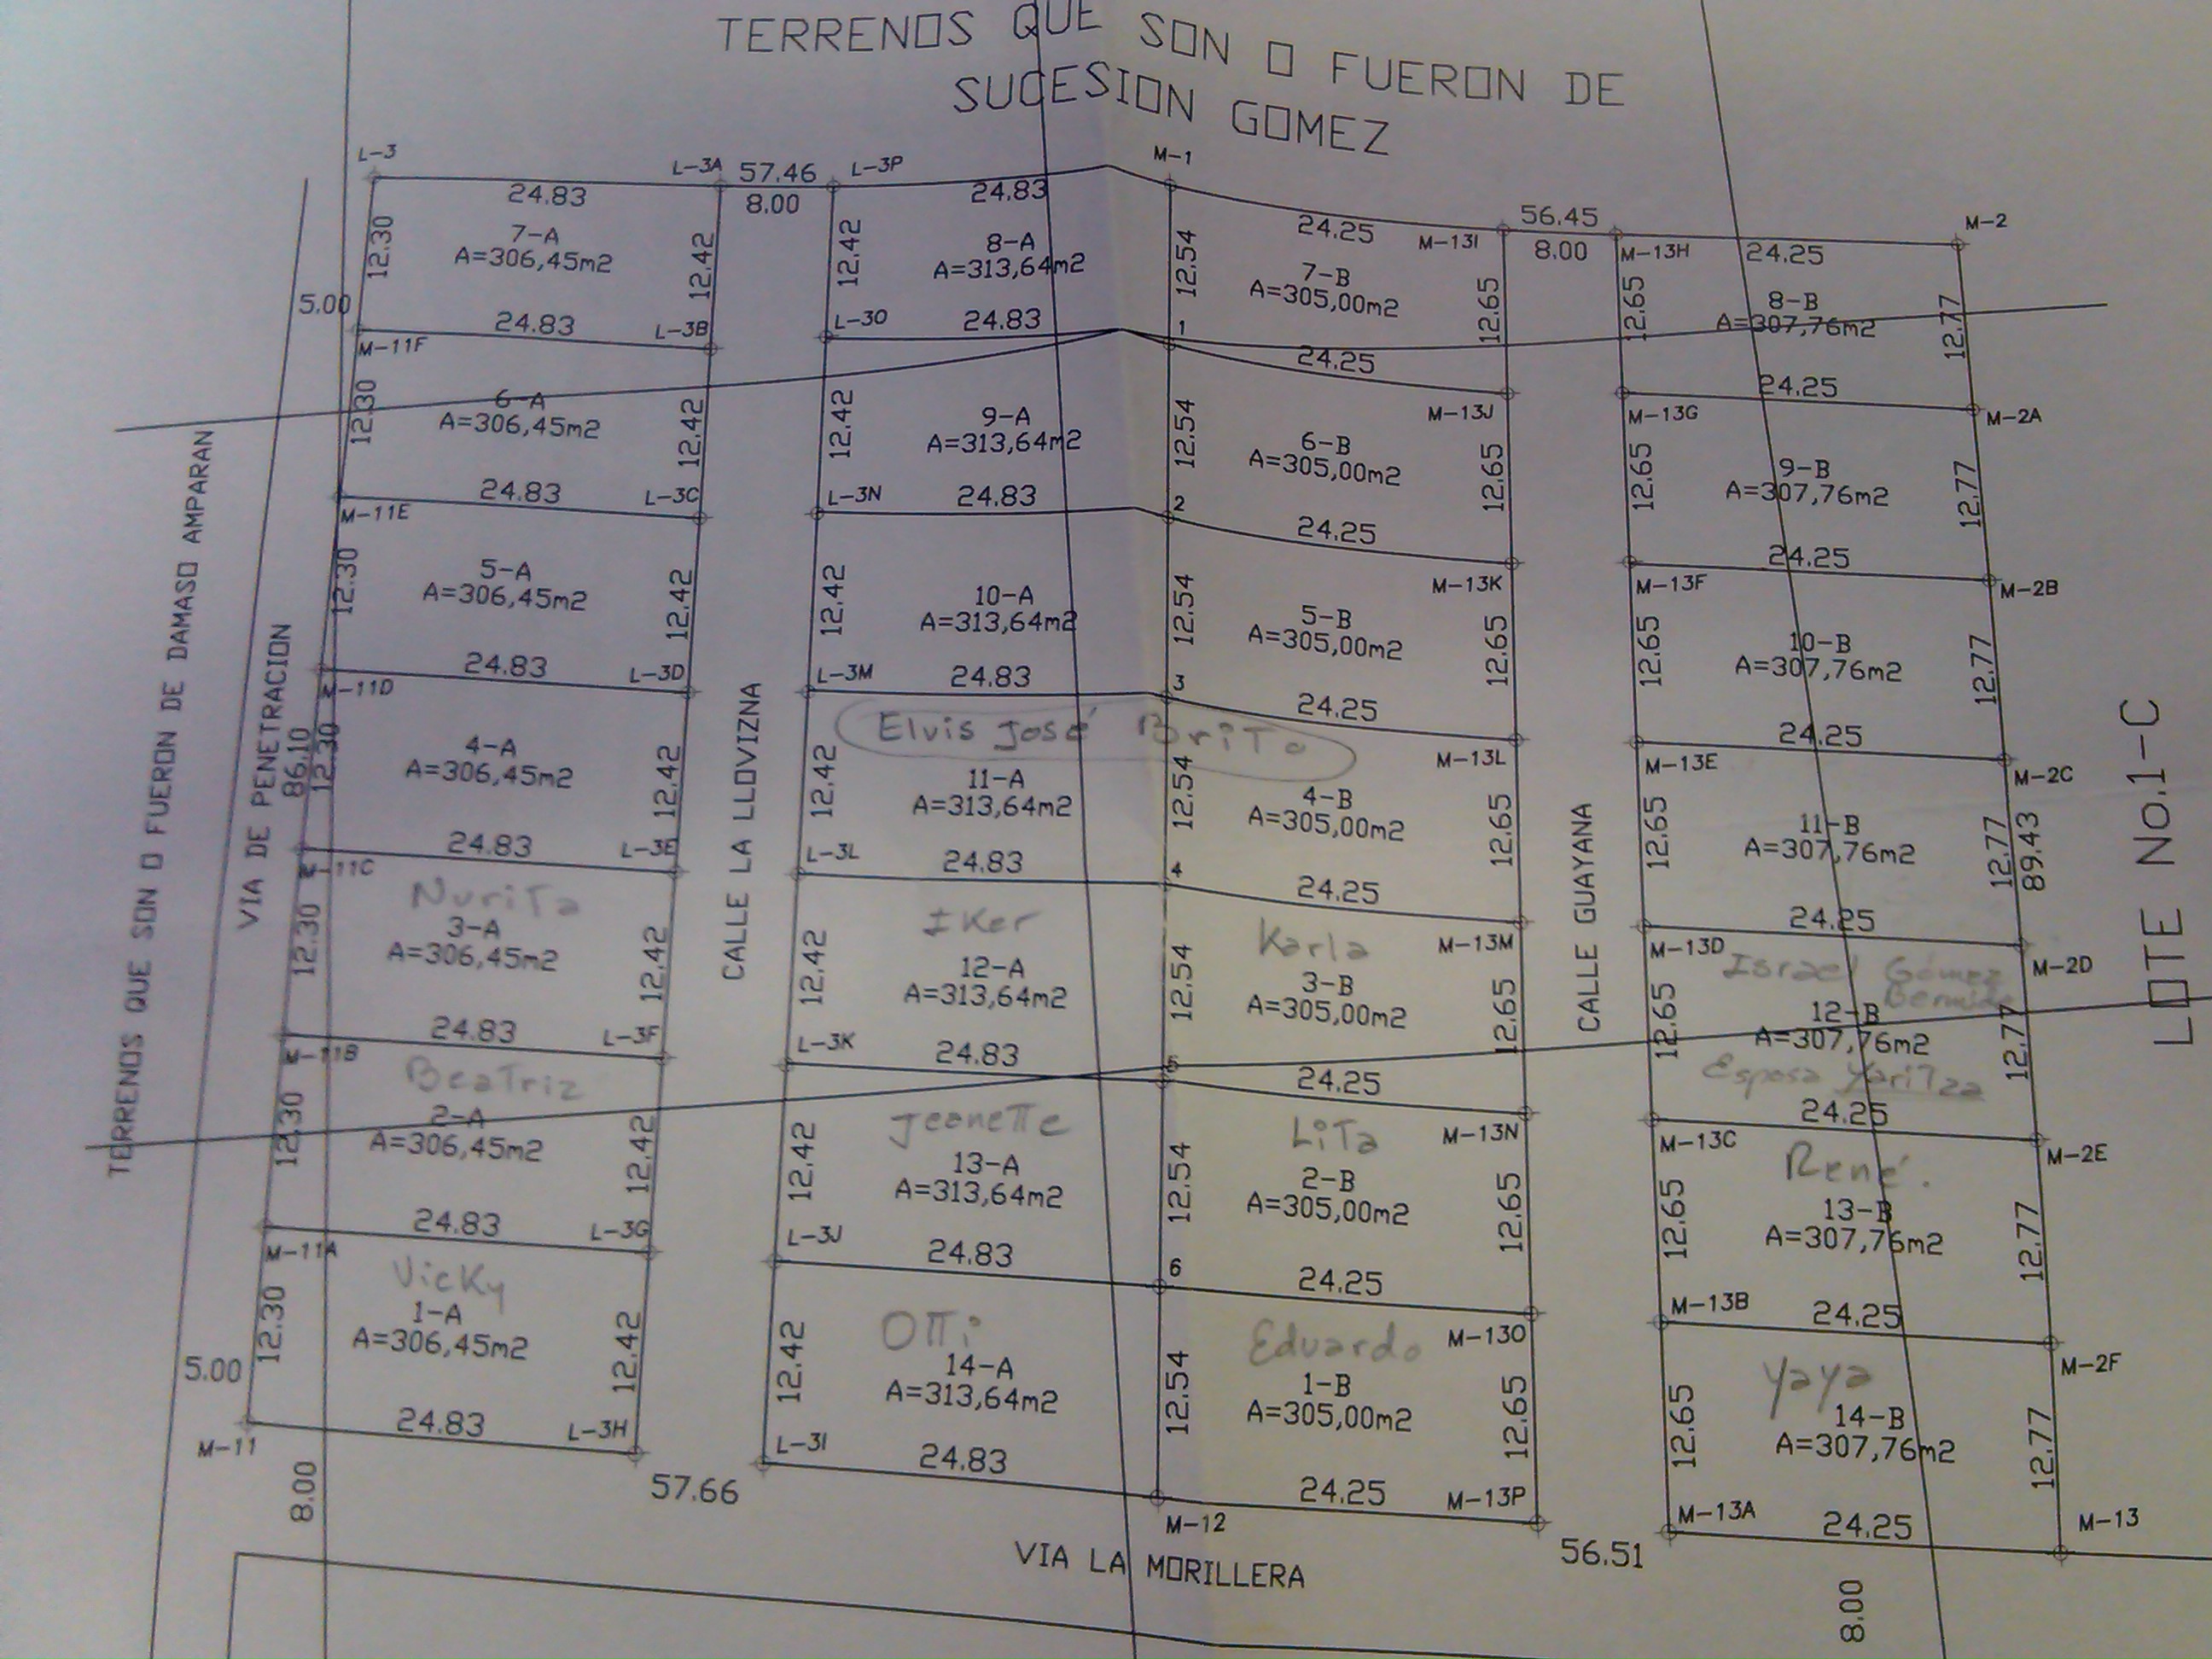 TERRENOS QUE SON O FUERON DE
SUCESION GOMEZ
L-3
L-3A
57.46
L-3P
M-1
24.83
8.00
24.83
24.25
M-13I
56.45
8.00
M-13H
24.25
M-2
12.30
7-A
A=306,45m2
12.42
12.42
8-A
A=313,64m2
12.54
7-B
A=305,00m2
12.65
12.65
8-B
A=307,76m2
12.77
5.00
24.83
L-3B
L-3O
24.83
1
24.25
24.25
M-11F
M-13J
M-13G
M-2A
12.30
6-A
A=306,45m2
12.42
12.42
9-A
A=313,64m2
12.54
6-B
A=305,00m2
12.65
12.65
9-B
A=307,76m2
12.77
24.83
L-3C
L-3N
24.83
2
24.25
24.25
M-11E
M-13K
M-13F
M-2B
12.30
5-A
A=306,45m2
12.42
12.42
10-A
A=313,64m2
12.54
5-B
A=305,00m2
12.65
12.65
10-B
A=307,76m2
12.77
24.83
L-3D
L-3M
24.83
3
24.25
24.25
M-11D
Elvis José Brito
M-13L
M-13E
M-2C
12.30
86.10
4-A
A=306,45m2
12.42
12.42
11-A
A=313,64m2
12.54
4-B
A=305,00m2
12.65
12.65
11-B
A=307,76m2
12.77
89.43
24.83
L-3E
L-3L
24.83
4
24.25
24.25
11C
Nurita
Iker
Karla
M-13M
M-13D
Israel Gómez
M-2D
12.30
3-A
A=306,45m2
12.42
12.42
12-A
A=313,64m2
12.54
3-B
A=305,00m2
12.65
12.65
12-B
A=307,76m2
Esposa Yaritza
12.77
24.83
L-3F
L-3K
24.83
5
24.25
24.25
11B
Beatriz
Jeanette
Lita
M-13N
M-13C
René.
M-2E
12.30
2-A
A=306,45m2
12.42
12.42
13-A
A=313,64m2
12.54
2-B
A=305,00m2
12.65
12.65
13-B
A=307,76m2
12.77
24.83
L-3G
L-3J
24.83
6
24.25
24.25
M-11A
Vicky
Otti
Eduardo
M-13O
M-13B
Yaya
M-2F
12.30
1-A
A=306,45m2
12.42
12.42
14-A
A=313,64m2
12.54
1-B
A=305,00m2
12.65
12.65
14-B
A=307,76m2
12.77
5.00
24.83
L-3H
L-3I
24.83
24.25
M-13P
M-13A
24.25
M-13
M-11
57.66
M-12
56.51
8.00
8.00
VIA LA MORILLERA
TERRENOS QUE SON O FUERON DE DAMASO AMPARAN
VIA DE PENETRACION
CALLE LA LLOVIZNA
CALLE GUAYANA
LOTE No.1-C